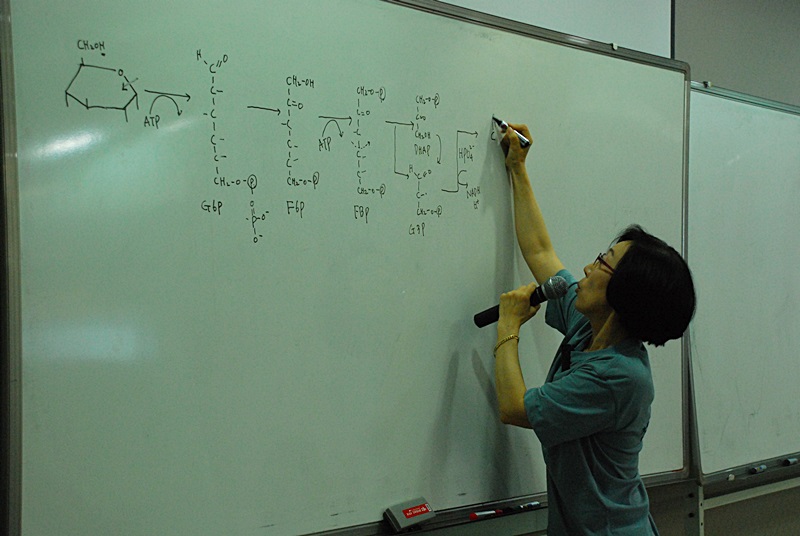 CH₂OH
O
ATP
H
C
O
C
C
C
C
CH₂-O-Ⓟ
G6P
O
-P-O⁻
O⁻
CH₂-OH
C=O
C
C
C
CH₂-O-Ⓟ
F6P
ATP
CH₂-O-Ⓟ
C=O
C
C
C
CH₂-O-Ⓟ
CH₂-O-Ⓟ
CH₂OH
DHAP
H
C
C
CH₂-O-Ⓟ
G3P
HPO₄²⁻
NADH
C